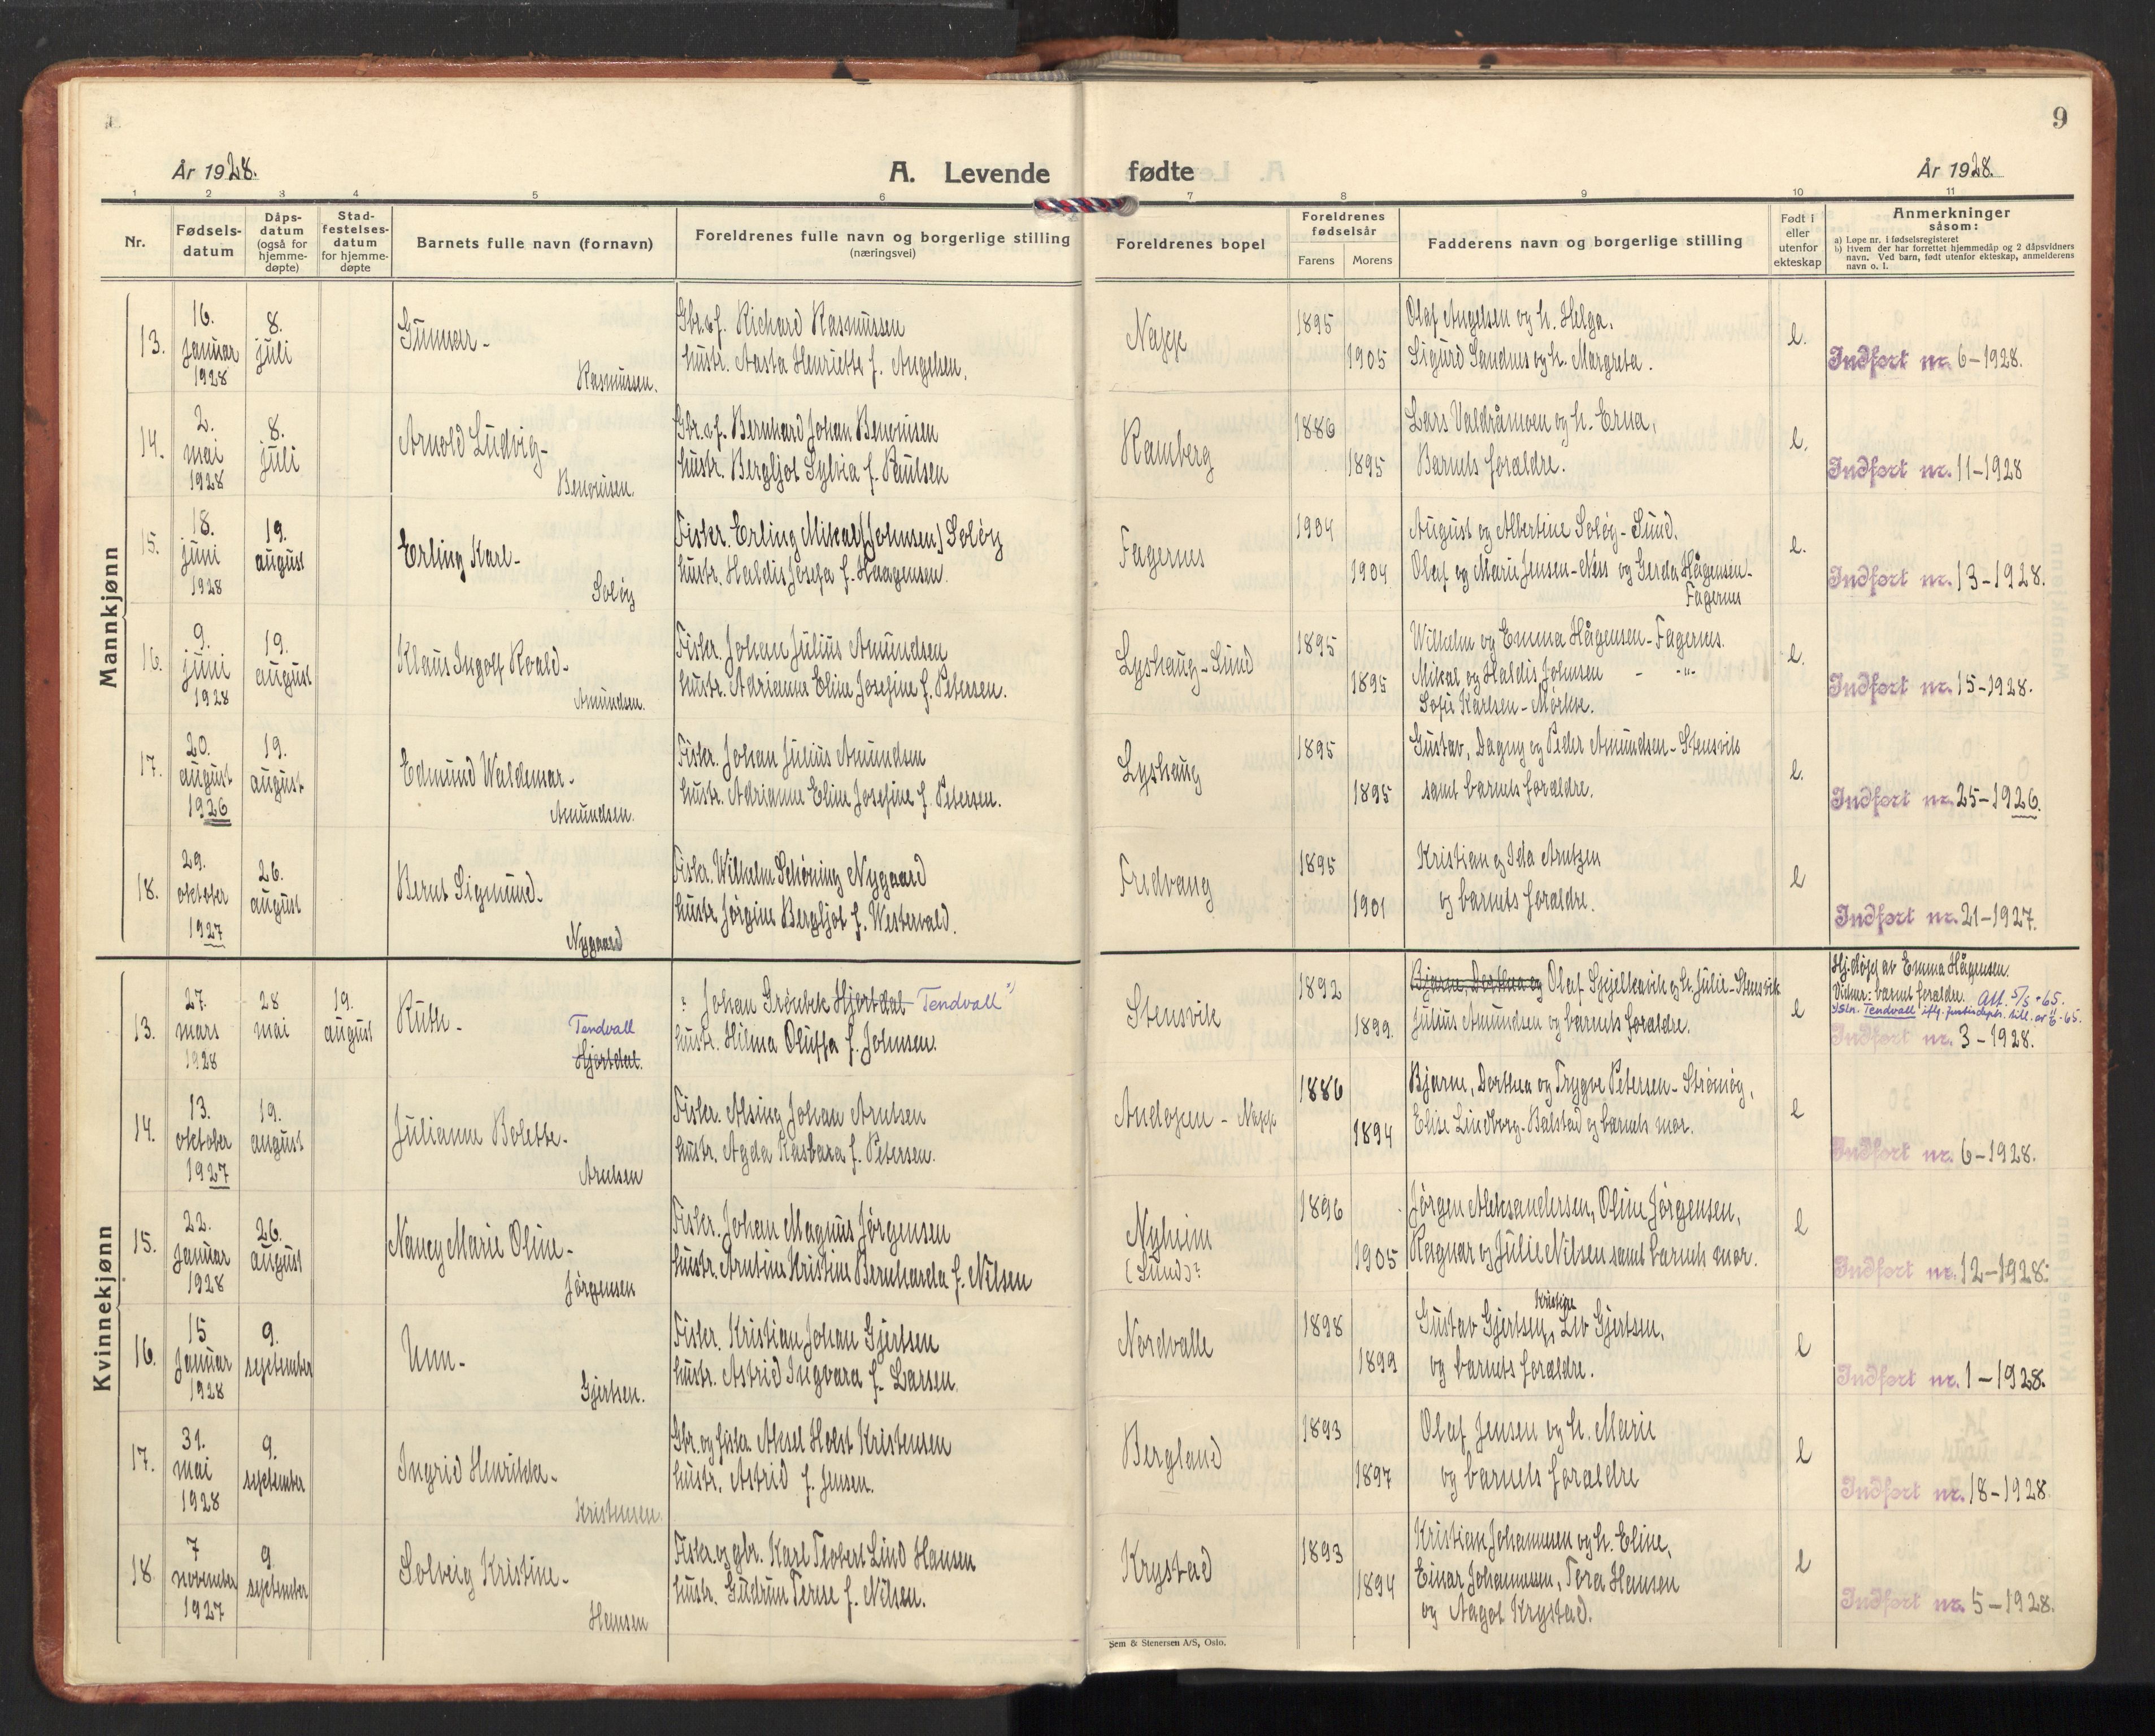 9
År 1928.
A. Levende
fødte
År 1928.
1 2 3 4 5 6 7 8 9 10 11
Nr.
Fødsels-
datum
Dåps-
datum
(også for
hjemme-
døpte)
Stad-
festelses-
datum
for hjemme-
døpte
Barnets fulle navn (fornavn)
Foreldrenes fulle navn og borgerlige stilling
(næringsvei)
Foreldrenes bopel
Foreldrenes
fødselsår
Farens Morens
Fadderens navn og borgerlige stilling
Født i
eller
utenfor
ekteskap
Anmerkninger
såsom:
a) Løpe nr. i fødselsregisteret
b) Hvem der har forrettet hjemmedåp og 2 dåpsvidners
navn. Ved barn, født utenfor ekteskap, anmelderens
navn o. l.
Mannkjønn
13.
16.
januar
1928
8.
juli
Gunnar-
Rasmussen.
Gbr. & f. Richard Rasmussen
hustr. Aasta Henriette f. Angelsen.
Napp
1895
1905
Olaf Angelsen og h. Helga.
Sigurd Sandnes og h. Margreta.
e.
Indført nr. 6-1928.
14.
2.
mai
1928
8.
juli
Arnold Ludvig-
Benonisen.
Gbr. & f. Bernhard Johan Benonisen
hustr. Bergljot Sylvia f. Paulsen
Ramberg
1886
1895
Lars Valdråmoen og h. Erna,
Barnets foraldre.
e.
Indført nr. 11-1928
15.
18.
juni
1928
19.
august
Erling Karl-
Soløy
Fisker. Erling Mikal (Johnsen) Soløy
hustr. Haldis Josefa f. Haagensen.
Fagernes
1904
1904
August og Albertine Soløy-Sund.
Olaf og Marie Jensen-Ness og Gerda Hågensen-
Fagernes
e.
Indført nr. 13-1928.
16.
9.
juni
1928
19.
august
Klaus Ingolf Roald-
Amundsen.
Fisker. Johan Julius Amundsen
hustr. Adrianne Eline Josefine f. Petersen.
Lyshaug-Sund
1895
1895
Wilhelm og Emma Hågensen-Fagernes.
Mikal og Haldis Johnsen - -"-
Sofie Karlsen-
e.
Indført nr. 15-1928.
17.
20.
august
1926
19.
august
Edmund Waldemar-
Amundsen.
Fisker. Johan Julius Amundsen
hustr. Adrianne Eline Josefine f. Petersen.
Lyshaug
1895
1895
Gustav, Dagny og Peder Amundsen-Stensvik
samt barnets foraldre.
e.
Indført nr. 25-1926.
18.
29.
oktober
1927
26.
august
Bernt Sigmund-
Nygaard
Fisker. Wilhelm Schöning Nygaard
hustr. Jørgine Bergljot f. Westervald.
Fredvang
1895
1901
Kristian og Ida Arntzen
og barnets foraldre.
e
Indført nr. 21-1927.
Kvinnekjønn
13.
27.
mars
1928
28
mai
19.
august
Ruth-
Tendvall
Hjertdal.
: Johan Grønbek Hjertdal Tendvall
hustr. Hilma Oluffa f. Johnsen.
Stensvik
1892
1899.
Bjarne, Dorthea og Olaf Spjelkavik og h. Julie-Stensvik
Julius Amundsen og barnets foraldre.
e
Hj.døpt av Emma Hågensen.
Vidner: barnets foraldre. Att. 5/5-65.
Tendvall iflg. justisdeptr. till. av
Indført nr. 3-1928.
14.
13.
oktober
1927
19.
august
Julianne Bolette-
Arntsen
Fisker. Alsing Johan Arntsen
hustr. Agda Rasbara f. Petersen.
Andopen - Napp
1886
1894
Bjarne, Dorthea og Trygve Petersen-Strømøy,
Elise Lindborg-Balstad og barnets mor.
e
Indført nr. 6-1928.
15.
22.
januar
1928
26.
august
Nancy Marie Oline-
Jørgensen
Fisker. Johan Magnus Jørgensen
hustr. Arntine Kristine Bernharda f. Nilsen
Nyheim
(Sund)?
1896
1905
Jørgen Aleksandersen, Oline Jørgensen,
Ragnar og Julie Nilsen samt barnets mor.
e
Indført nr. 12-1928.
16.
15
januar
1928
9.
september
Unn-
Gjertsen.
Fisker. Kristian Johan Gjertsen
hustr. Astrid Ingvara f. Larsen.
Nordvalle
1898
1899
Kristine
Gustav Gjertsen, Liv Gjertsen,
og barnets foraldre.
e
Indført nr. 1-1928.
17.
31.
mai
1928
9.
september
Ingrid Henrikke-
Kristensen.
Gbr. og fisker. Aksel Holst Kristensen
hustr. Astrid f. Jensen.
Bergland
1893
1897
Olaf Jensen og h. Marie
og barnets foraldre
e
Indført nr. 18-1928
18.
7
november
1927
9.
september
Solveig Kristine-
Hansen
Fisker. og gbr. Karl Teobert Lind Hansen
hustr. Gudrun Terese f. Nilsen.
Krystad
1893
1894
Kristian Johannesen og h. Eline,
Einar Johannesen, Tora Hansen
og Aagot Krystad.
e
Indført nr. 5-1928.
Sem & Stenersen A/S, Oslo.